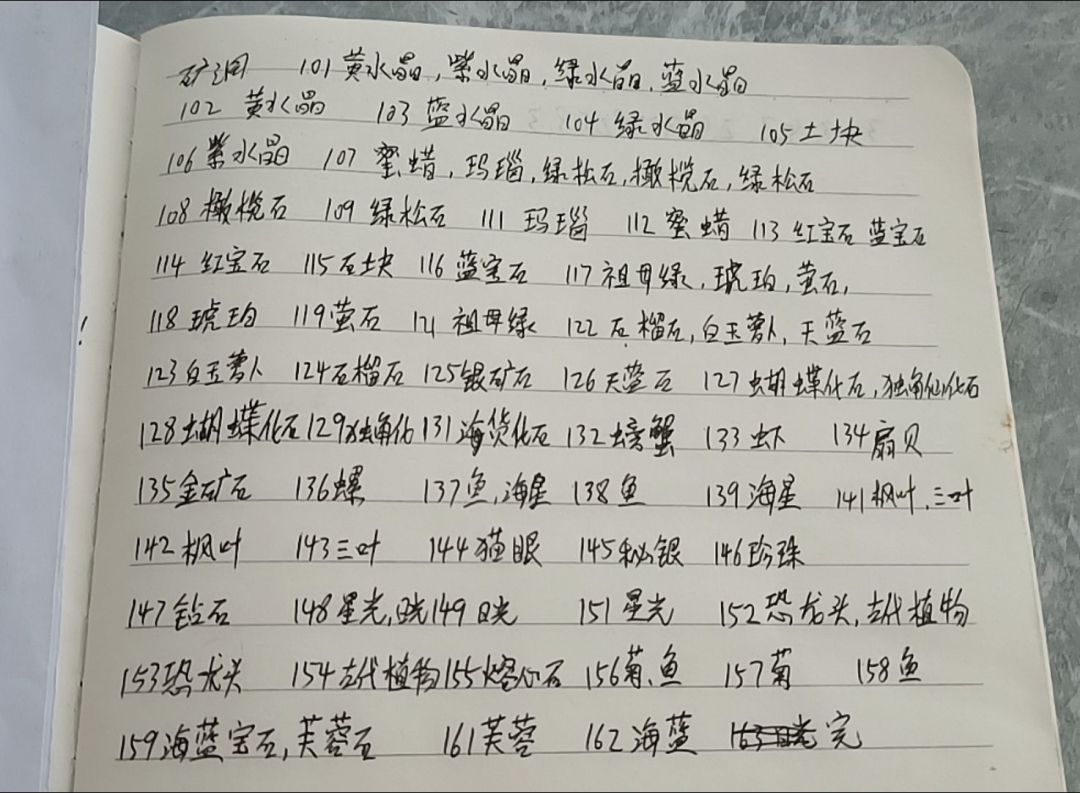 矿洞 101 黄水晶，紫水晶，绿水晶，蓝水晶
102 黄水晶 103 蓝水晶 104 绿水晶 105 土块
106 紫水晶 107 蜜蜡，玛瑙，绿松石，橄榄石，绿松石
108 橄榄石 109 绿松石 111 玛瑙 112 蜜蜡 113 红宝石 蓝宝石
114 红宝石 115 石块 116 蓝宝石 117 祖母绿，琥珀，萤石，
118 琥珀 119 萤石 121 祖母绿 122 石榴石，白玉萝卜，天蓝石
123 白玉萝卜 124 石榴石 125 银矿石 126 天蓝石 127 蝴蝶化石，独角仙化石
128 蝴蝶化石 129 独角化 131 海货化石 132 螃蟹 133 虾 134 扇贝
135 金矿石 136 螺 137 鱼，海星 138 鱼 139 海星 141 枫叶，三叶
142 枫叶 143 三叶 144 猫眼 145 秘银 146 珍珠
147 钻石 148 星光，日光 149 日光 151 星光 152 恐龙头，古代植物
153 恐龙头 154 古代植物 155 熔心石 156 菊、鱼 157 菊 158 鱼
159 海蓝宝石，芙蓉石 161 芙蓉 162 海蓝 完
!